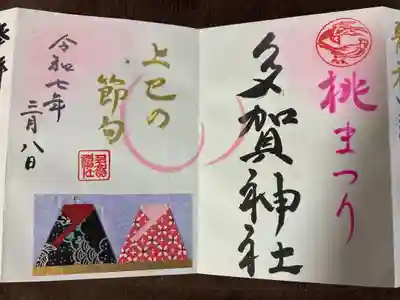 桃まつり
多賀神社
上巳の
節句
令和七年
三月八日